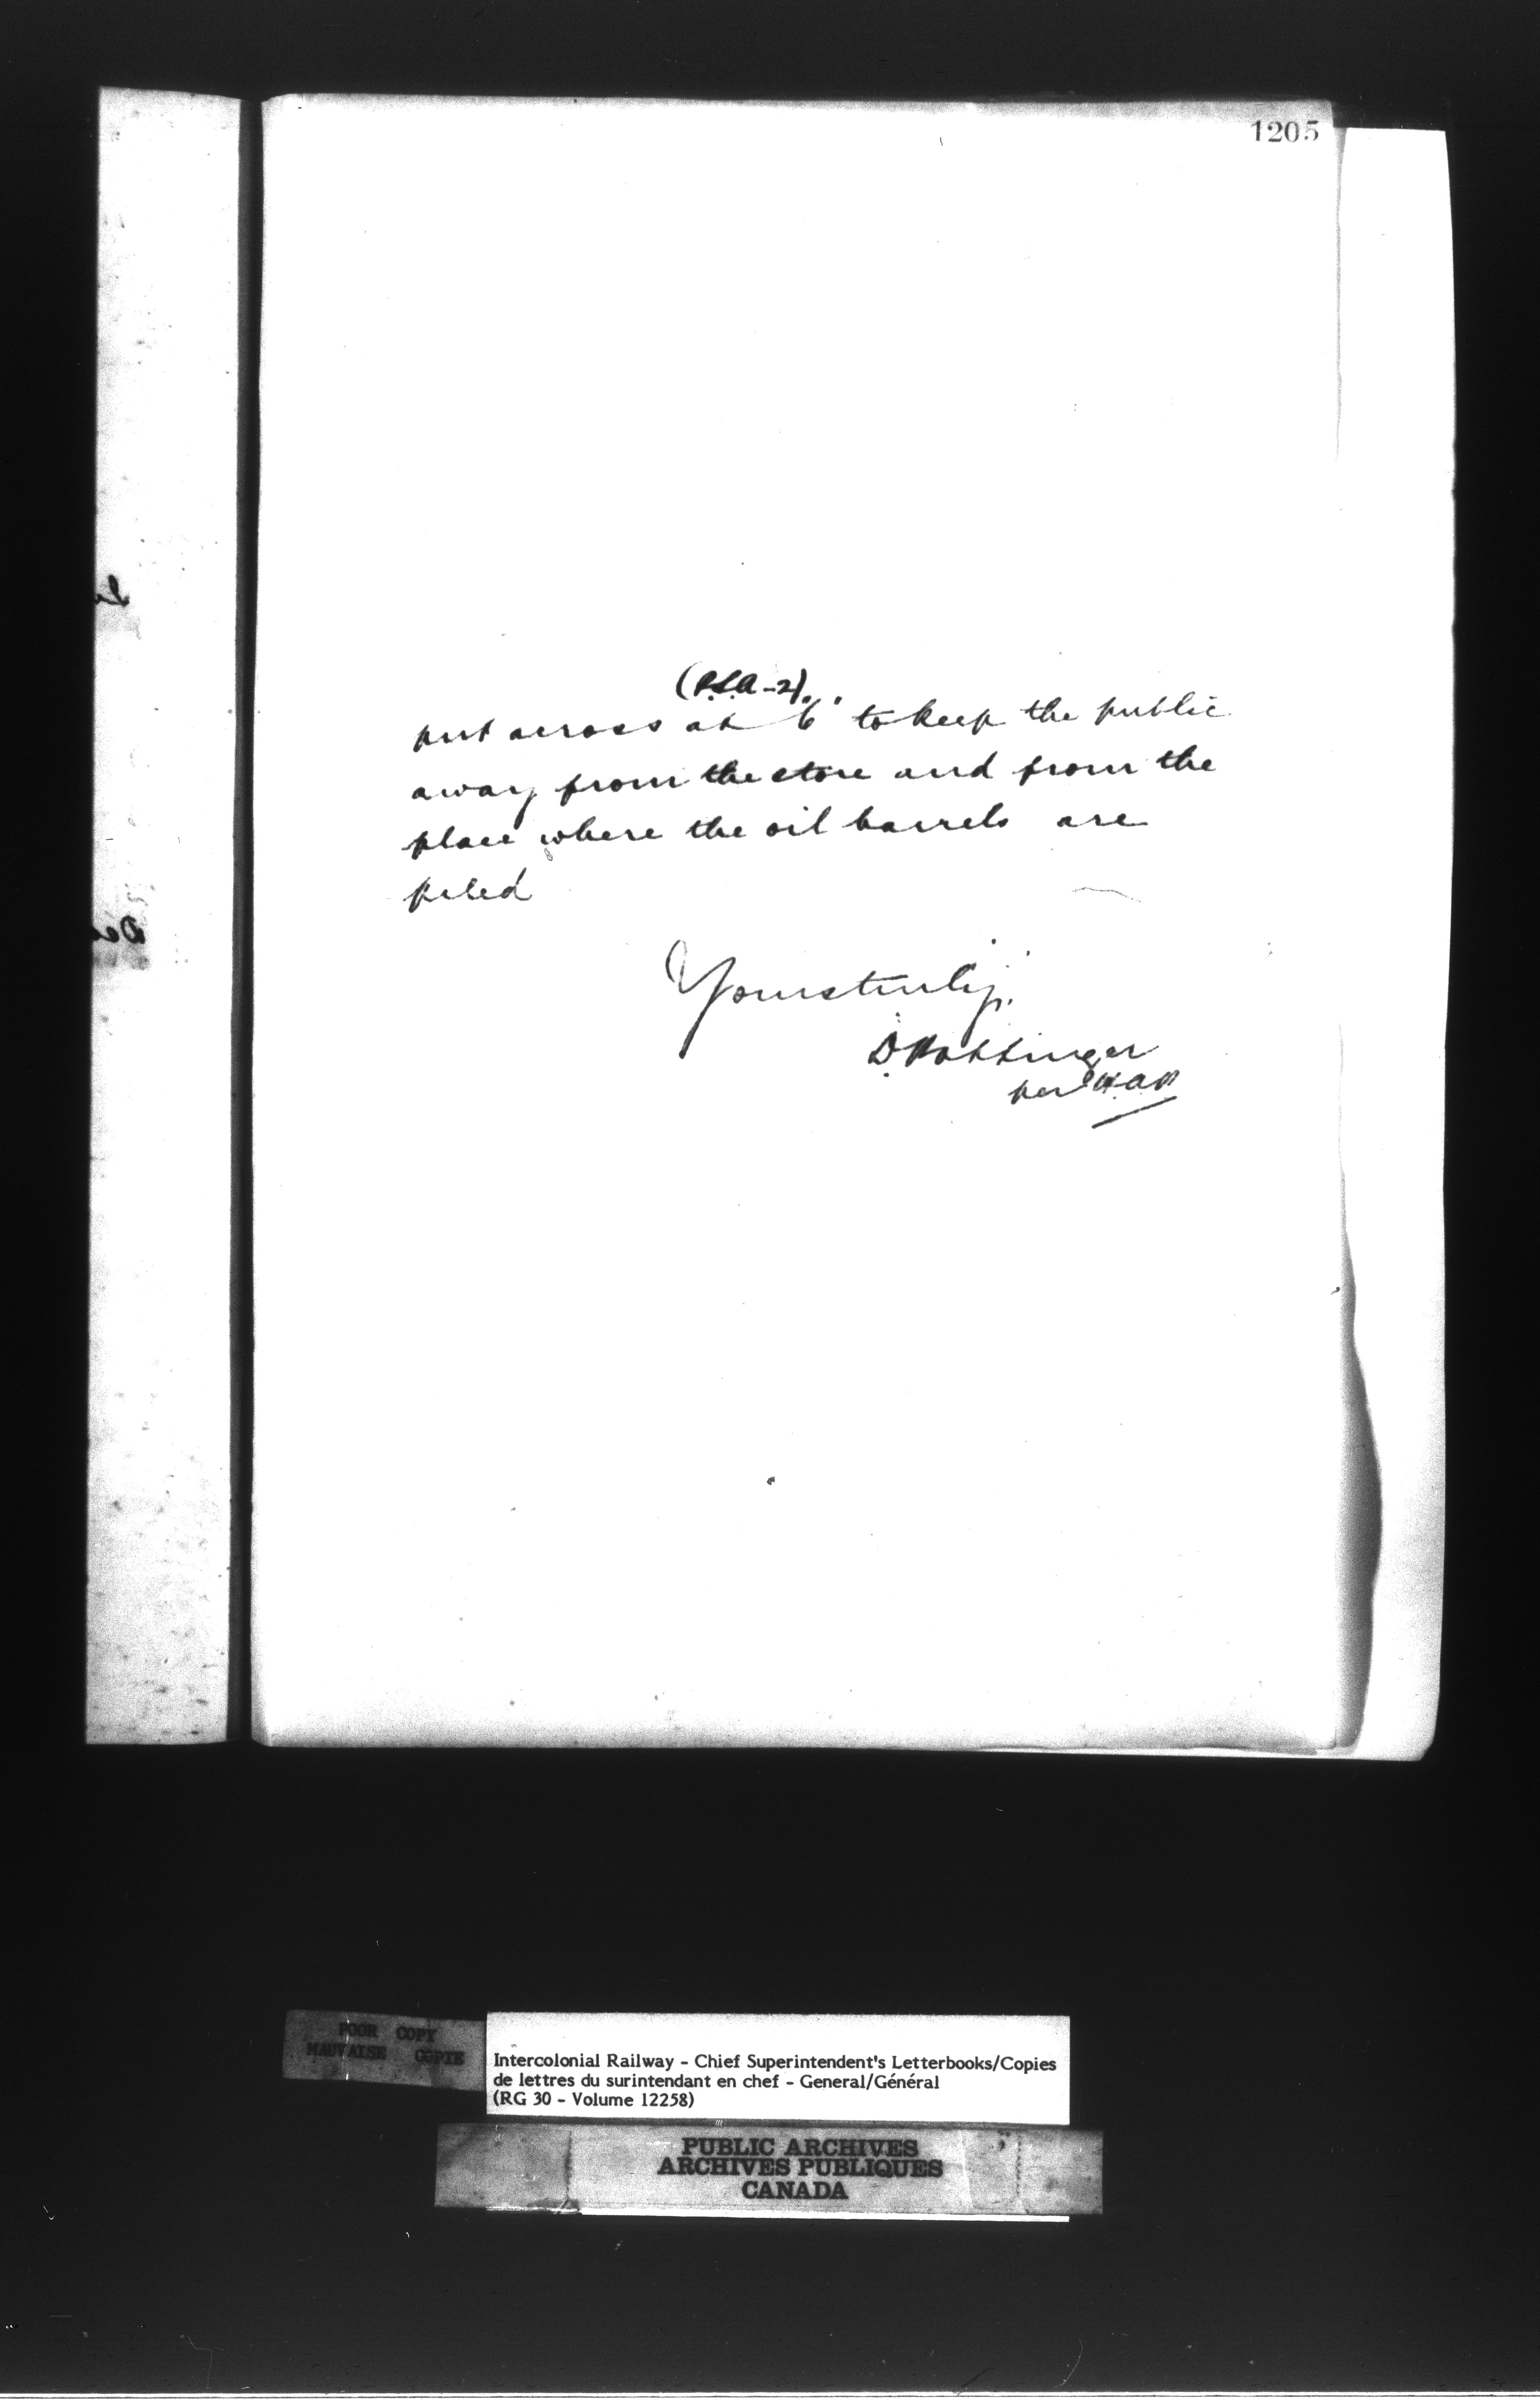 1205
(P.S.A-2)
put across at "b" to keep the public
away from the store and from the
place where the oil barrels are
piled
Yours truly,
D Pottinger
per H.A.P.
POOR COPY
MAUVAISE COPIE
Intercolonial Railway - Chief Superintendent's Letterbooks/Copies
de lettres du surintendant en chef - General/Général
(RG 30 - Volume 12258)
PUBLIC ARCHIVES
ARCHIVES PUBLIQUES
CANADA